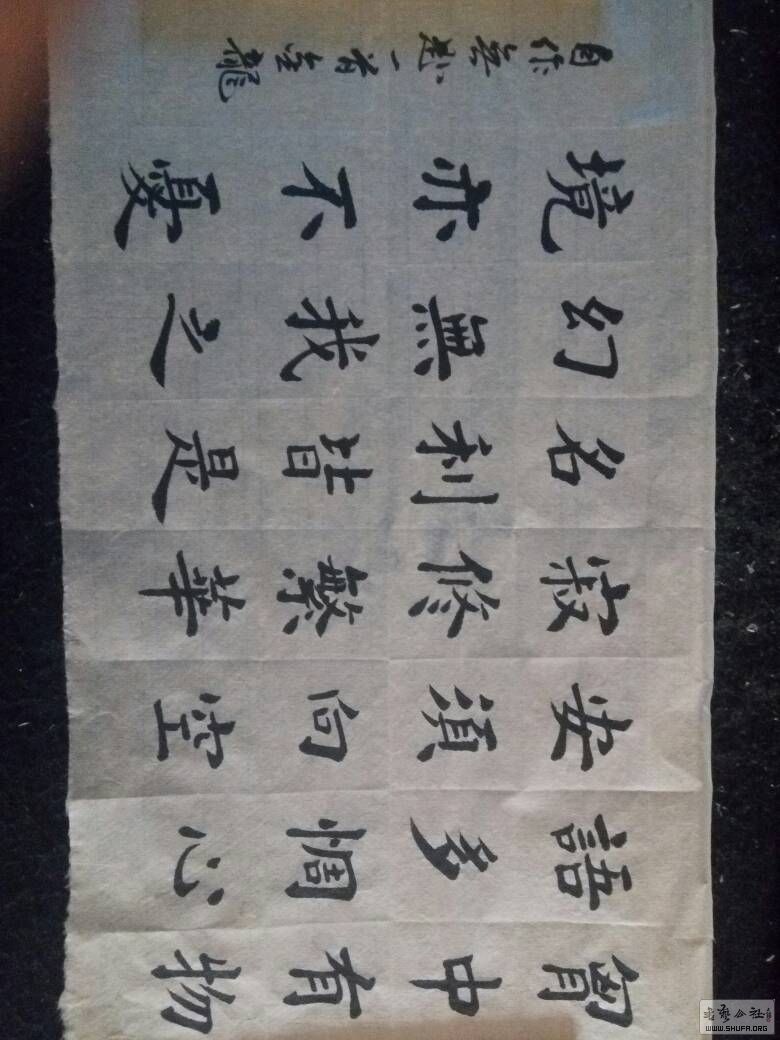 胷中有物
語多惆心
安須向空
寂修繁華
名利皆是
幻無我之
境亦不憂
自作無題一首金龍
书艺公社
WWW.SHUFA.ORG